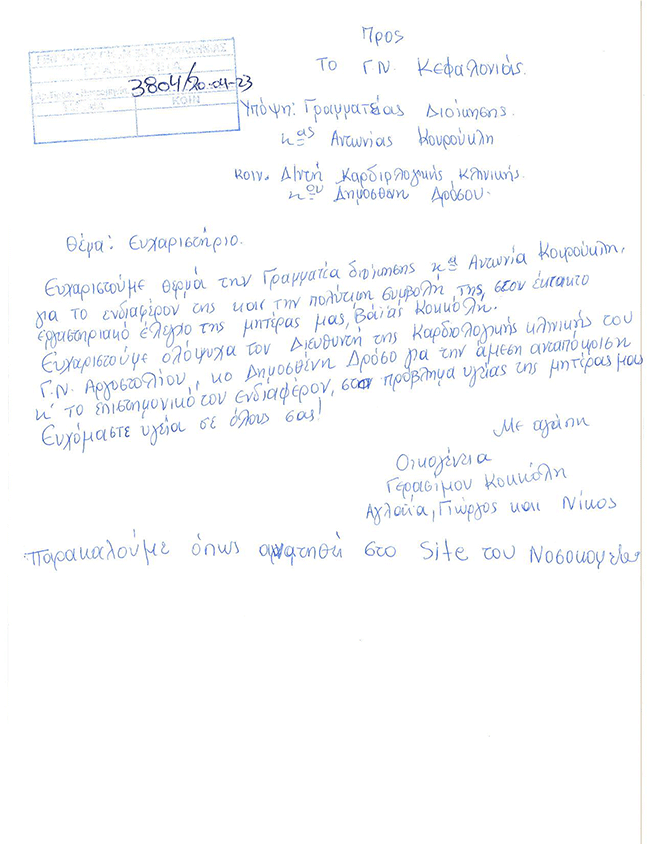 Προς
Το Γ.Ν. Κεφαλονιάς.
3804/20-04-23
ΚΟΙΝ
Υπόψη: Γραμματείας Διοίκησης.
κας Αντωνίας Κουρούκλη
κοιν. Δ/ντή Καρδιολογικής κλινικής.
κου Δημοσθένη Δρόσου.
Θέμα: Ευχαριστήριο.
Ευχαριστούμε θερμά την Γραμματέα διοίκησης κα Αντωνία Κουρούκλη,
για το ενδιαφέρον της και την πολύτιμη συμβολή της, στον έκτακτο
εργαστηριακό έλεγχο της μητέρας μας, Βάϊας Κοκκόλη.
Ευχαριστούμε ολόψυχα τον Διευθυντή της Καρδιολογικής κλινικής του
Γ.Ν. Αργοστολίου, κο Δημοσθένη Δρόσο για την άμεση ανταπόκριση
κ' το επιστημονικό του ενδιαφέρον, στο πρόβλημα υγείας της μητέρας μας
Ευχόμαστε υγεία σε όλους σας!
Με αγάπη
Οικογένεια
Γερασίμου Κοκκόλη
Αγλαΐα, Γιώργος και Νίκος
Παρακαλούμε όπως αναρτηθή στο Site του Νοσοκομείου